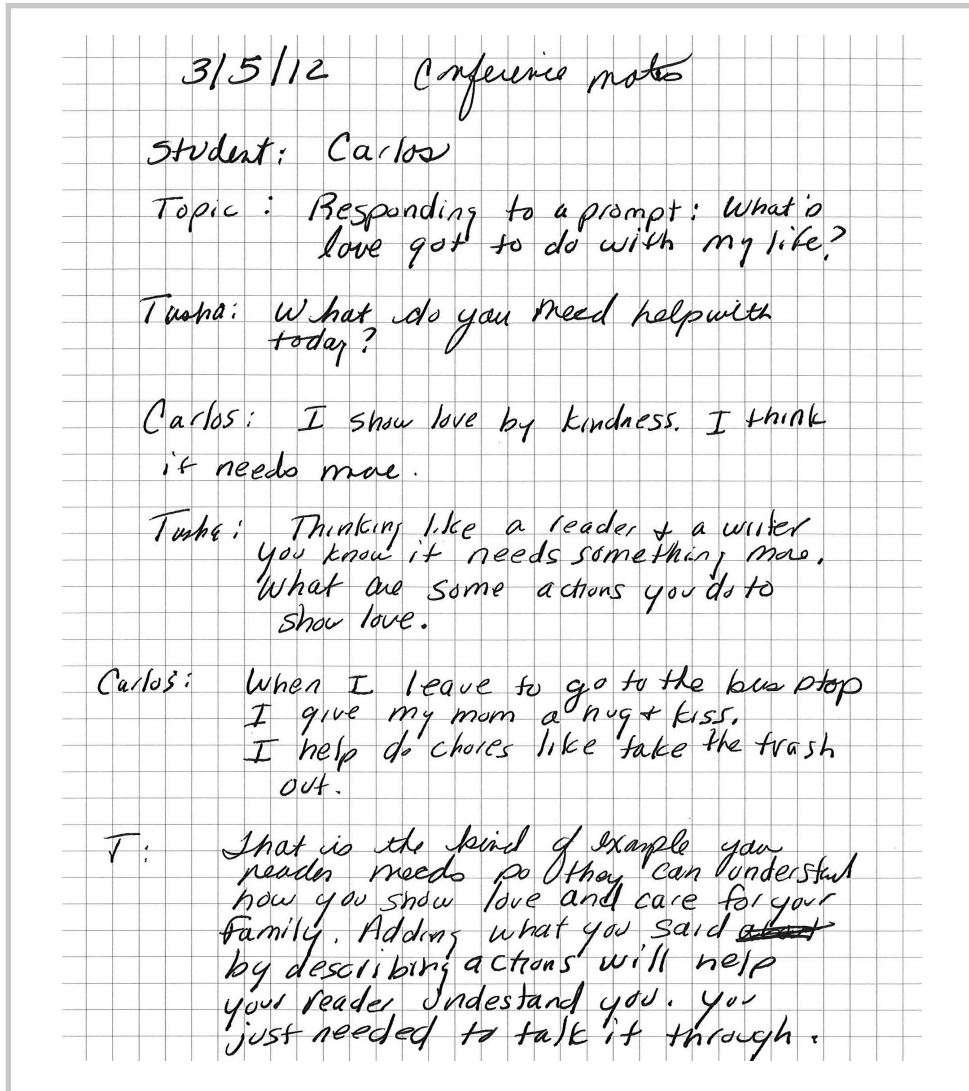 3/5/12 Conference notes
Student: Carlos
Topic: Responding to a prompt: What's
love got to do with my life?
Tasha: What do you need help with
today?
Carlos: I show love by kindness. I think
it needs more.
Tasha: Thinking like a reader & a writer
you know it needs something more.
What are some actions you do to
show love.
Carlos: When I leave to go to the bus stop
I give my mom a hug & kiss.
I help do chores like take the trash
out.
T: That is the kind of example you
reader needs so they can understand
how you show love and care for your
family. Adding what you said
by describing actions will help
your reader undestand you. You
just needed to talk it through.